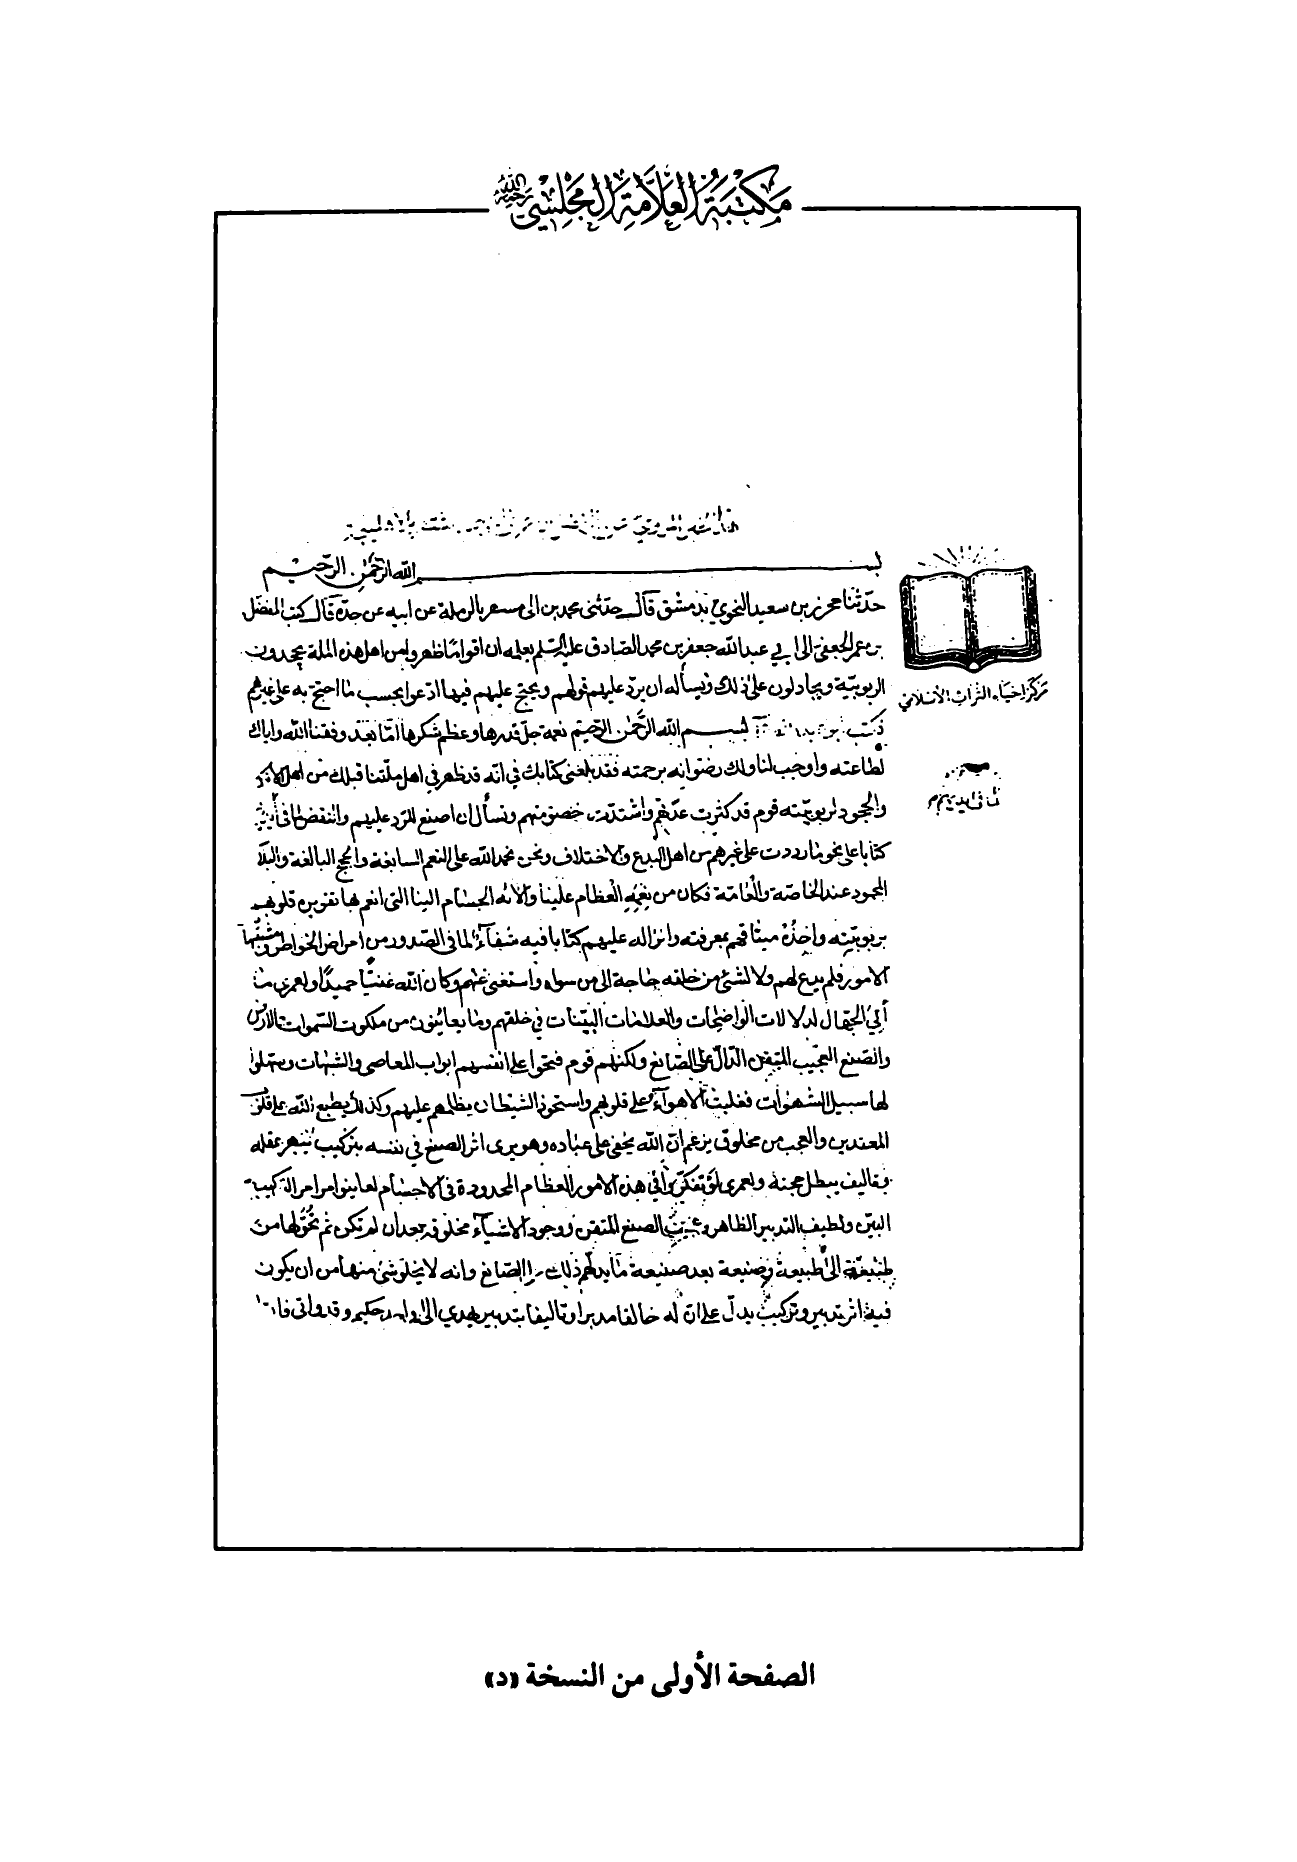 مكتبة العلامة المجلسي رحمه الله
بسم الله الرحمن الرحيم
حدّثنا محرز بن سعيد النحوي بدمشق قال حدثنى محمد بن ابى مسهر بالرملة عن ابيه عن جدّه قال كتب المفضل
بن عمر الجعفي الى ابي عبد الله جعفر بن محمد الصادق عليه السلم يعلمه ان اقواما ظهروا من اهل هذه الملة يجحدون
الربوبيّة ويجادلون على ذلك ويسأله ان يردّ عليهم قولهم ويحتج عليهم فيما ادّعوا بحسب ما احتج به على غيرهم
فكتب ابو عبد الله بسم الله الرحمن الرحيم نعمة جل قدرها وعظم شكرها امّا بعد وفقنا الله واياك
لطاعته واوجب لنا ولك رضوانه برحمته فقد بلغنى كتابك في انّه قد ظهر في اهل ملّتنا قبلك من اهل
والجحود لربوبيّته قوم قد كثرت عدّتهم واشتدّت خصومتهم وتسأل ان اصنع للردّ عليهم والنقض لما فى
كتابا على نحو ما رددت على غيرهم من اهل البدع والاختلاف ونحن نحمد الله على النعم السابغة والحجج البالغة والبلاء
المحمود عند الخاصة والعامة فكان من نعمه العظام علينا والائه الجسام الينا التى انعم بها تقريره قلوبهم
بربوبيّته واخذه ميثاقهم بمعرفته وانزاله عليهم كتابا فيه شفآء لما فى الصّدور من امراض الخواطر ومشتبهات
الامور فلم يدع لهم ولا لشئ من خلقه حاجة الى من سواه واستغنى عنهم وكان الله غنيّا حميدًا ولعمرى ما
أتي الجهّال لدلالات الواضحات والعلامات البيّنات في خلقهم وما يعاينون من ملكوت السّموات والارض
والصّنع العجيب المتقن الدّالّ على الصّانع ولكنّهم قوم فتحوا على انفسهم ابواب المعاصى والشبهات وسهلوا
لها سبيل الشهوات فغلبت الاهوآء على قلوبهم واستحوذ الشيطان بظلمهم عليهم وكذلك يطبع الله على قلوب
المعتدين والعجب من مخلوق يزعم انّ الله يخفى على عباده وهو يرى اثر الصنع في نفسه بتركيب يبهر عقله
وتاليف يبطل حجته ولعمرى لو تفكّروا في هذه الامور العظام المحدودة فى الاجسام لعاينوا من امر التركيب
البيّن ولطيف التدبير الظاهر وعجيب الصنع المتقن ووجود الاشيآء مخلوقة بعد ان لم تكن ثم تحوّلها من
طبيعة الى طبيعة وصنيعة بعد صنيعة ما يدلّهم ذلك على الصّانع وانه لا يخلو شئ منها من ان يكون
فيه اثر تدبير وتركيب يدلّ على انّ له خالقا مدبرا وتاليفا بتدبير يهدي الى واحد حكيم وقد وافى
مركز احياء التراث الاسلامي
الصفحة الأولى من النسخة «د»